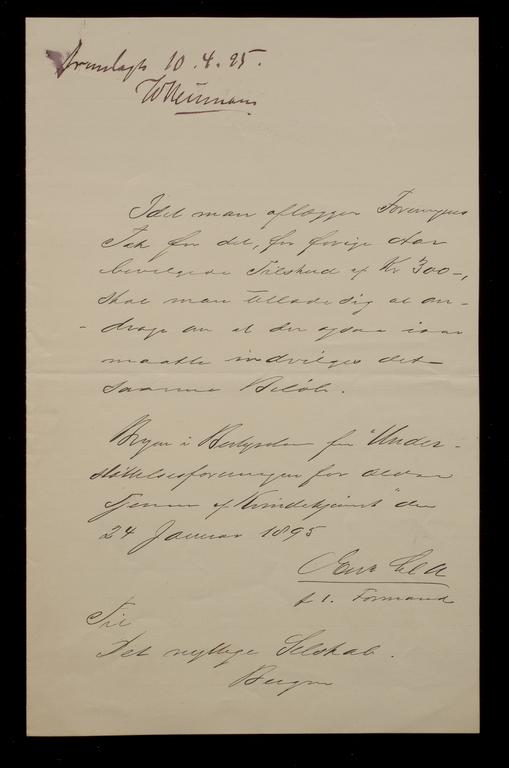 Fremlagts 10.4.95.
W Neumann
Idet man aflægger Foreningens
Tak for det, for forige Aar
bevilgede Tilskud af Kr 300-,
skal man tillade sig at an-
-drage om at der ogsaa iaar
maatte indvilges det
samme Beløb.
Bergen i Bestyrelsen for "Under-
støttelsesforeningen for ældre
Tjenere af Kvindekjønnet" den
24 Januar 1895
f t. Formand
Til
Det nyttige Selskab.
Bergen